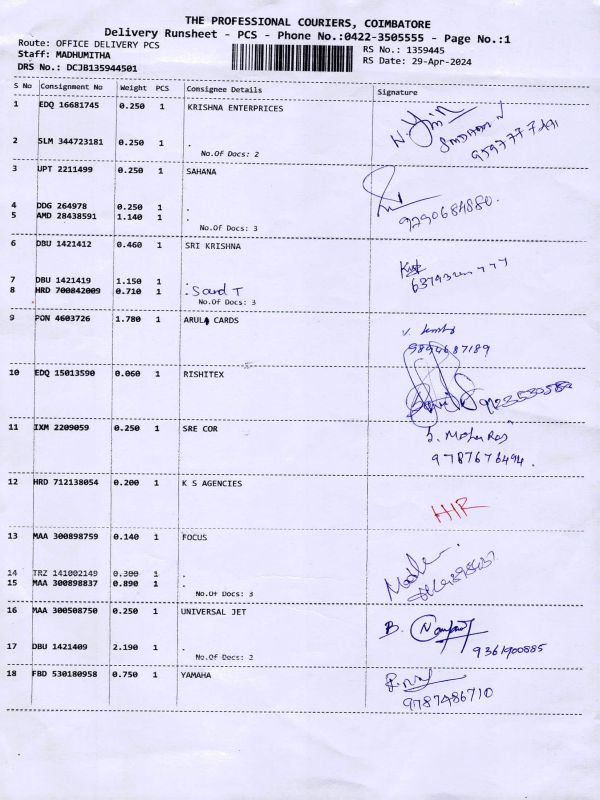 THE PROFESSIONAL COURIERS, COIMBATORE
Delivery Runsheet - PCS - Phone No.:0422-3505555 - Page No.:1
Route: OFFICE DELIVERY PCS
RS No.: 1359445
Staff: MADHUMITHA
RS Date: 29-Apr-2024
DRS No.: DCJB135944501
S No Consignment No Weight PCS Consignee Details Signature
1 EDQ 16681745 0.250 1 KRISHNA ENTERPRICES
2 SLM 344723181 0.250 1 .
No.Of Docs: 2
3 UPT 2211499 0.250 1 SAHANA
4 DDG 264978 0.250 1 .
5 AMD 28438591 1.140 1 .
9290684880.
No.Of Docs: 3
6 DBU 1421412 0.460 1 SRI KRISHNA
7 DBU 1421419 1.150 1 .
8 HRD 700842009 0.710 1 .
No.Of Docs: 3
9 PON 4603726 1.780 1 ARULA CARDS
9894687189
10 EDQ 15013590 0.060 1 RISHITEX
11 IXM 2209059 0.250 1 SRE COR
9787676494.
12 HRD 712138054 0.200 1 K S AGENCIES
13 MAA 300898759 0.140 1 FOCUS
14 TRZ 141002149 0.300 1 .
15 MAA 300898837 0.890 1 .
No.Of Docs: 3
16 MAA 300508750 0.250 1 UNIVERSAL JET
17 DBU 1421409 2.190 1 .
9361900885
No.Of Docs: 2
18 FBD 530180958 0.750 1 YAMAHA
9787486710